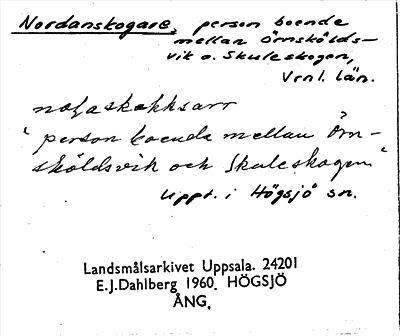 Nordanskogare, person boende
mellan Örnskölds-
vik o. Skuleskogen,
Vrnl. län.
"person boende mellan Örn-
sköldsvik och Skuleskogen"
Uppt. i Högsjö sn.
Landsmålsarkivet Uppsala. 24201
E.J.Dahlberg 1960. HÖGSJÖ
ÅNG.